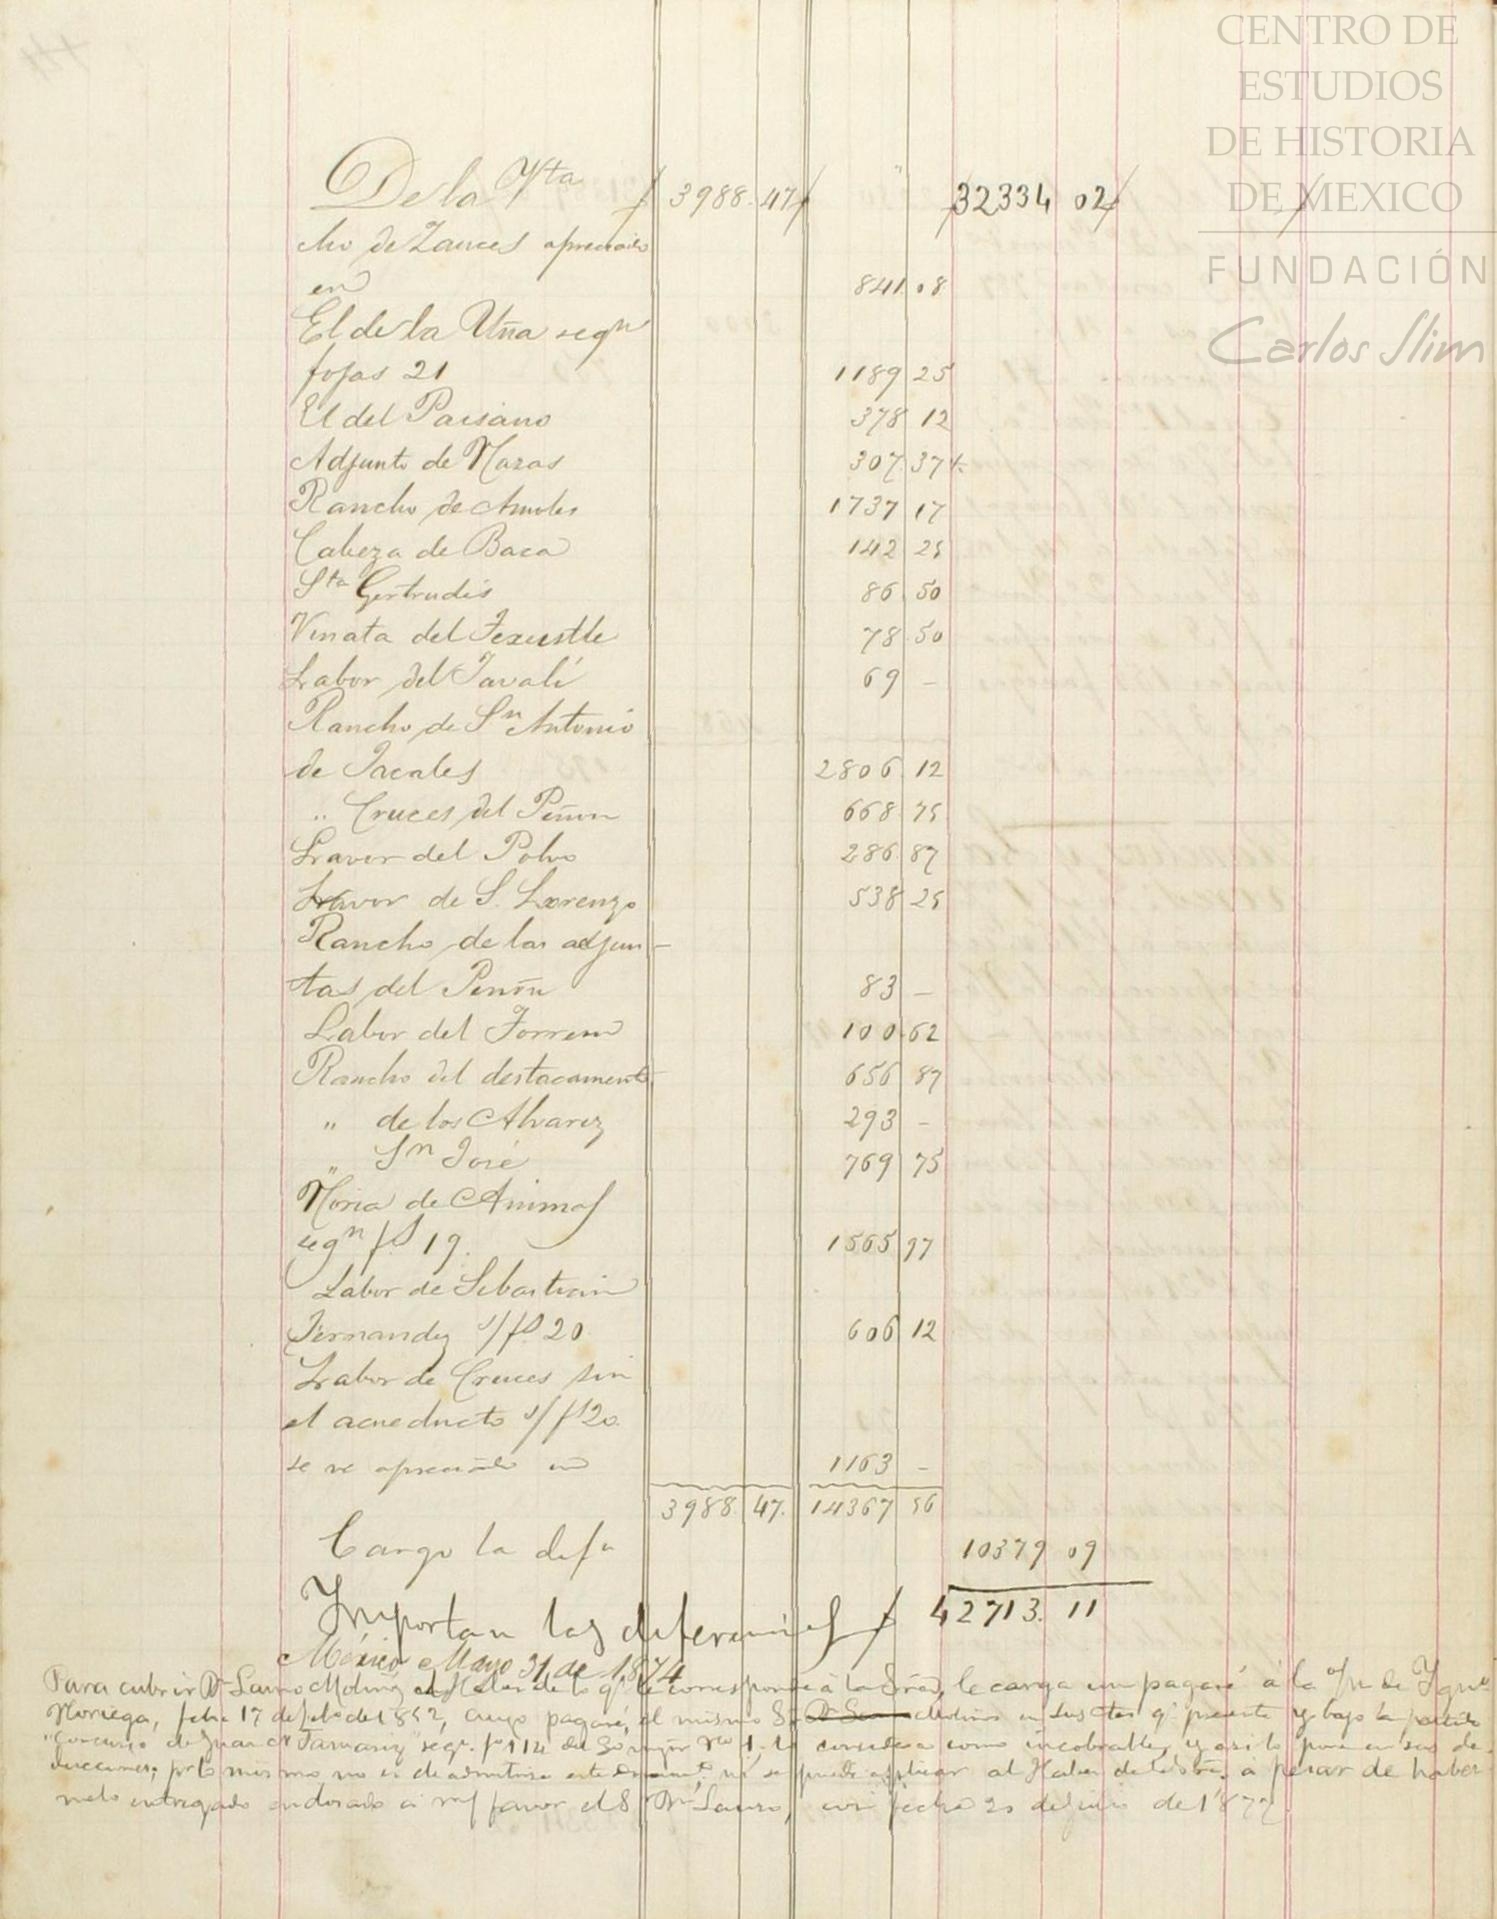 CENTRO DE
ESTUDIOS
DE HISTORIA
DE MEXICO
FUNDACIÓN
Carlos Slim
De la Vta 3988. 47 " 32334 02
cho de Zauces apreciado
en 841. 08
El de la Uña segn
fojas 21 1189 25
El del Paisano 378 12
Adjunto de Nazas 307. 37 ½
Rancho de Amoles 1737 17
Cabeza de Baca 142 25
Sta Gertrudis 86. 50
Vinata del Texustle 78. 50
Labor del Javalí 69 –
Rancho de Sn Antonio
de Jacales 2806. 12
" Cruces del Peñon 668. 75
Lavor del Polvo 286. 87
Lavor de S. Lorenzo 538 25
Rancho de las adjun-
tas del Peñon 83 –
Labor del Torreon 100. 62
Rancho del destacamento 656 87
" de los Alvarez 293 –
" Sn José 769 75
Noria de Animas
segn fs 19. 1565 97
Labor de Sebastian
Fernandez s/fs 20 606 12
Labor de Cruces sin
el acueducto s/fs 20.
se ve apreciado en 1163 –
3988. 47. 14367 56
Cargo la difa 10379 09
Importan las diferencias $ 42713. 11
México Mayo 31, de 1,874
Para cubrir Dn Lauro Molina el Haber de lo q. le corresponde à la Sra, le carga un pagaré á la o/n de Ygno
Noriega, feha 17 de de 1852, cuyo pagaré, el mismo Sr en sus ctas q. presentó y bajo la partida
"concurso de Juan Tamariz" segn. fs 114 del mayor No 1, lo considera como incobrable, y asi lo pone en sus de-
ducciones; por lo mismo no es de admitirse este ni se puede aplicar al Haber de la Sra, a pesar de haber-
melo entregado endosado a mi favor el Sr Dn Lauro, con fecha 20 de de 1872